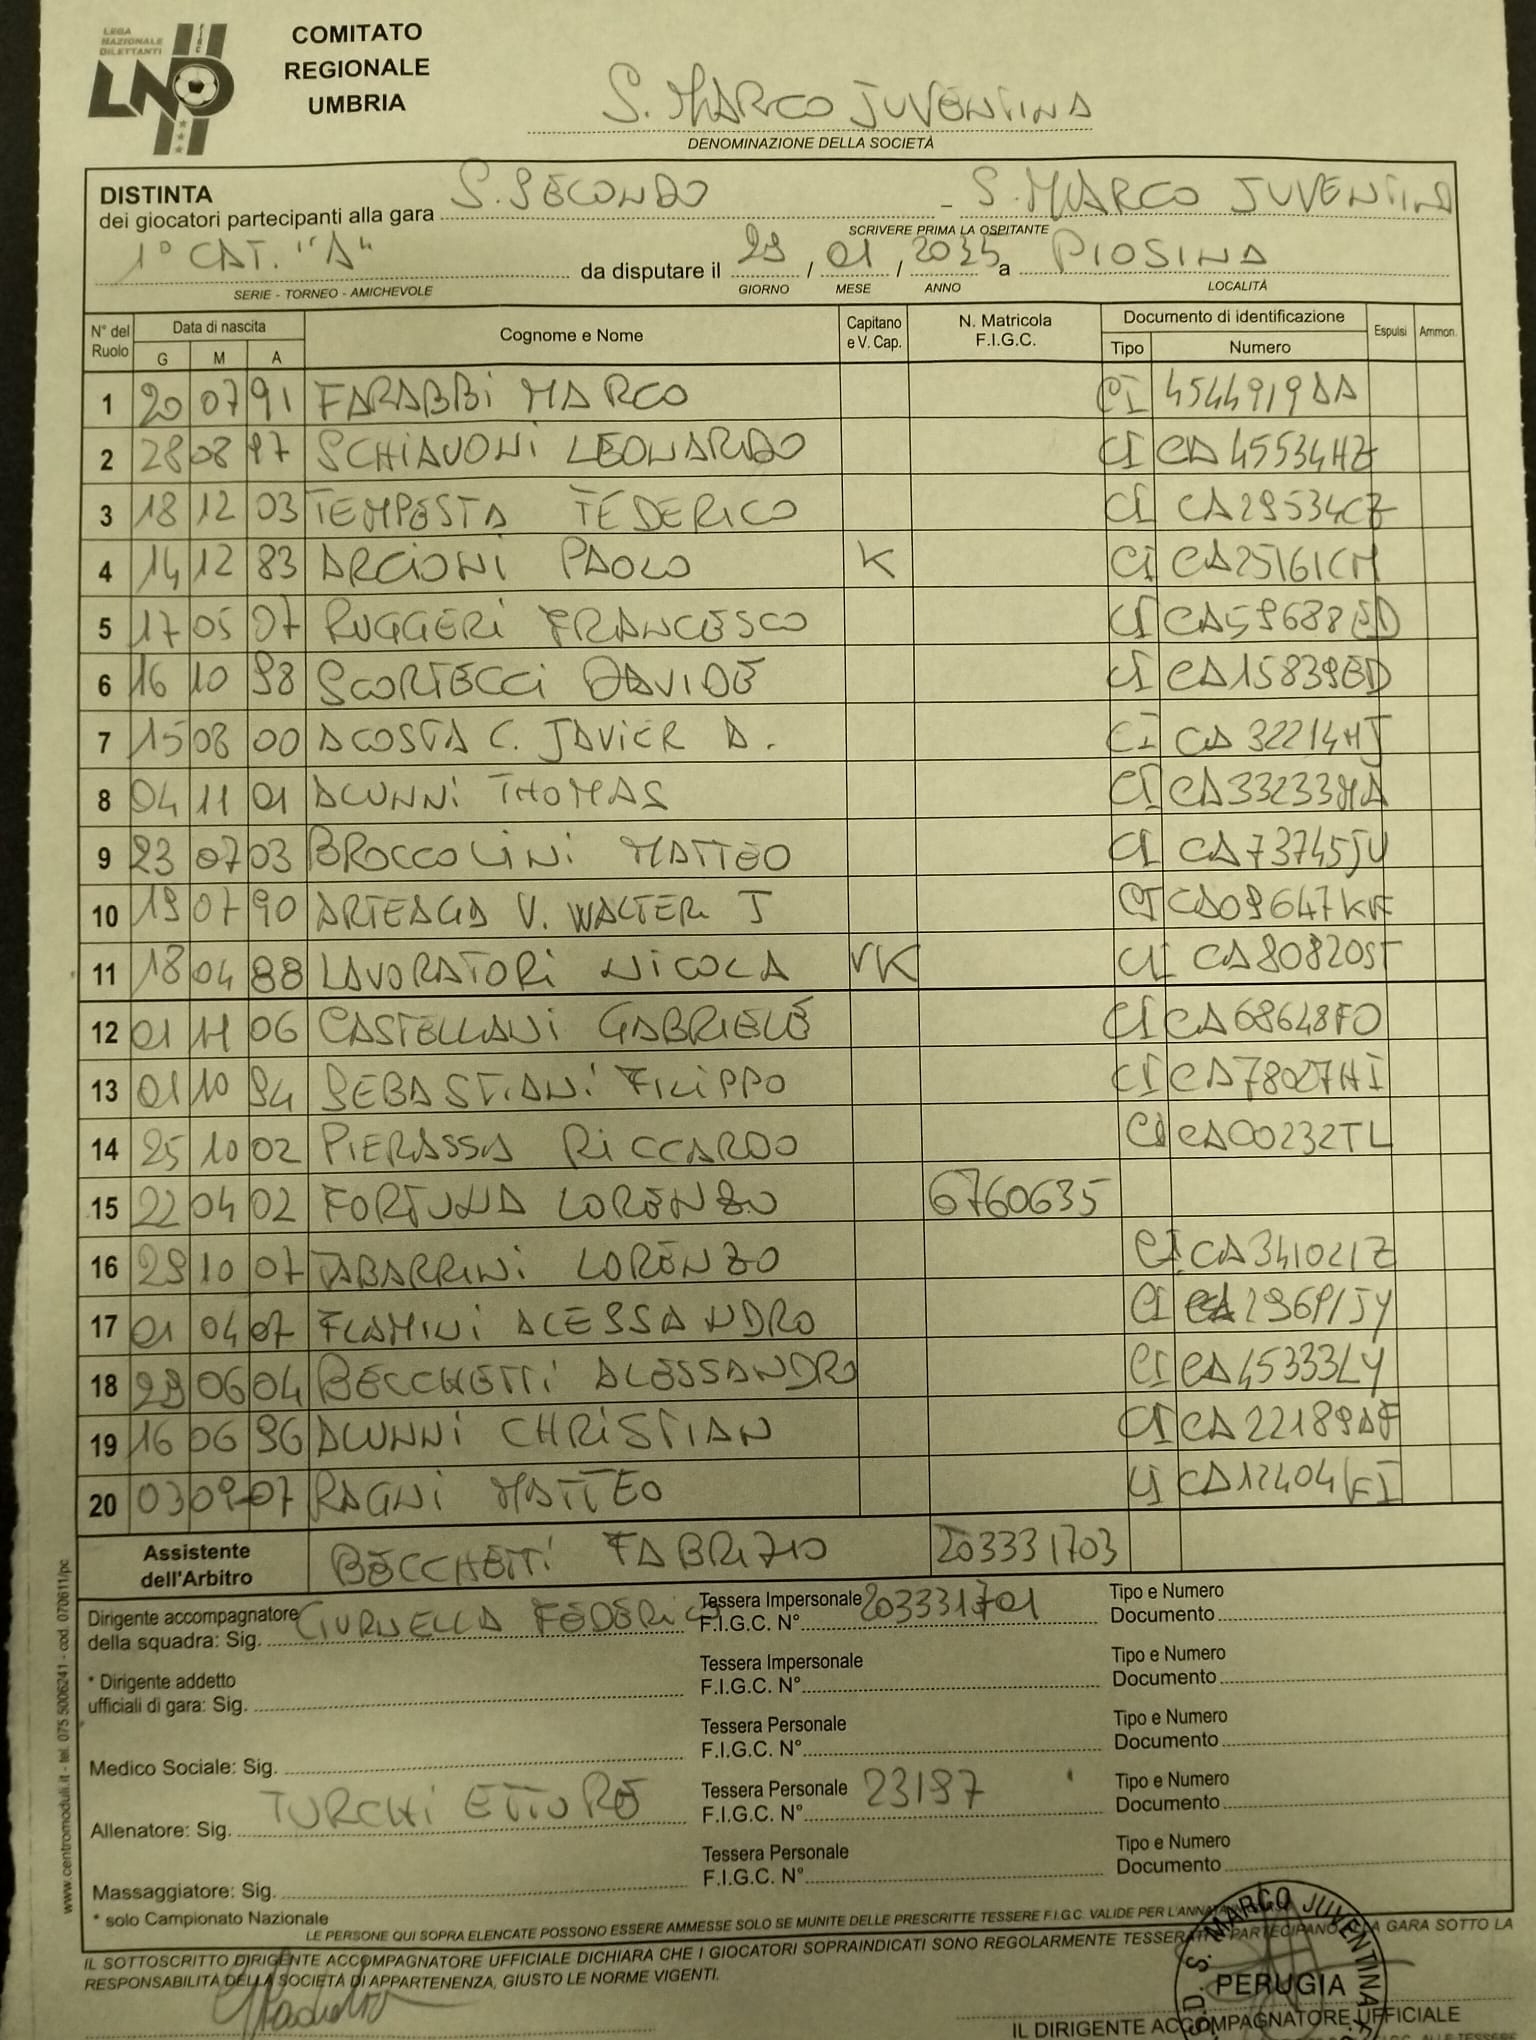 LEGA
NAZIONALE
DILETTANTI
LND
COMITATO
REGIONALE
UMBRIA
S. MARCO JUVENTINA
DENOMINAZIONE DELLA SOCIETÀ
DISTINTA
dei giocatori partecipanti alla gara S. SECONDO - S. MARCO JUVENTINA
SCRIVERE PRIMA LA OSPITANTE
1° CAT. "A" da disputare il 29 / 01 / 2025 a PIOSINA
SERIE - TORNEO - AMICHEVOLE GIORNO MESE ANNO LOCALITÀ
N° del Ruolo Data di nascita Cognome e Nome Capitano e V. Cap. N. Matricola F.I.G.C. Documento di identificazione Espulsi Ammon.
G M A Tipo Numero
1 20 07 91 FARABBI MARCO CI 4544919AA
2 28 08 97 SCHIAVONI LEONARDO CI CA45534HZ
3 18 12 03 TEMPESTA FEDERICO CI CA29534CZ
4 14 12 83 ARCIONI PAOLO K CI CA25161CM
5 17 05 07 RUGGERI FRANCESCO CI CA59688ED
6 16 10 98 SCORTECCI DAVIDE CI CA15839ED
7 15 08 00 ACOSTA C. JAVIER A. CI CA32214HJ
8 04 11 01 ALUNNI THOMAS CI CA33233MA
9 23 07 03 BROCCOLINI MATTEO CI CA73745JU
10 19 07 90 ARTEAGA V. WALTER J CI CA09647KK
11 18 04 88 LAVORATORI NICOLA VK CI CA80820ST
12 01 11 06 CASTELLANI GABRIELE CI CA68648FO
13 01 10 94 SEBASTIANI FILIPPO CI CA78027HI
14 25 10 02 PIERASSA RICCARDO CI CA00232TL
15 22 04 02 FORTUNA LORENZO 6760635
16 29 10 07 TABARRINI LORENZO CI CA34102IZ
17 01 04 07 FLAMINI ALESSANDRO CI
18 29 06 04 BECCHETTI ALESSANDRO CI CA45333LY
19 16 06 96 ALUNNI CHRISTIAN CI CA22189AF
20 03 09 07 RAGNI MATTEO CI CA12404KI
Assistente dell'Arbitro BECCHETTI FABRIZIO 203331703
Dirigente accompagnatore della squadra: Sig. CIURNELLA FEDERICO Tessera Impersonale F.I.G.C. N° 203331701 Tipo e Numero Documento
* Dirigente addetto ufficiali di gara: Sig. Tessera Impersonale F.I.G.C. N° Tipo e Numero Documento
Medico Sociale: Sig. Tessera Personale F.I.G.C. N° Tipo e Numero Documento
Allenatore: Sig. TURCHI ETTORE Tessera Personale F.I.G.C. N° 23197 Tipo e Numero Documento
Massaggiatore: Sig. Tessera Personale F.I.G.C. N° Tipo e Numero Documento
* solo Campionato Nazionale
LE PERSONE QUI SOPRA ELENCATE POSSONO ESSERE AMMESSE SOLO SE MUNITE DELLE PRESCRITTE TESSERE F.I.G.C. VALIDE PER L'ANNATA
IL SOTTOSCRITTO DIRIGENTE ACCOMPAGNATORE UFFICIALE DICHIARA CHE I GIOCATORI SOPRAINDICATI SONO REGOLARMENTE TESSERATI PARTECIPANO ALLA GARA SOTTO LA
RESPONSABILITÀ DELLA SOCIETÀ DI APPARTENENZA, GIUSTO LE NORME VIGENTI.
S. MARCO JUVENTINA
PERUGIA
IL DIRIGENTE ACCOMPAGNATORE UFFICIALE
www.centromoduli.it - tel. 075 5006241 - cod. 070611/pc